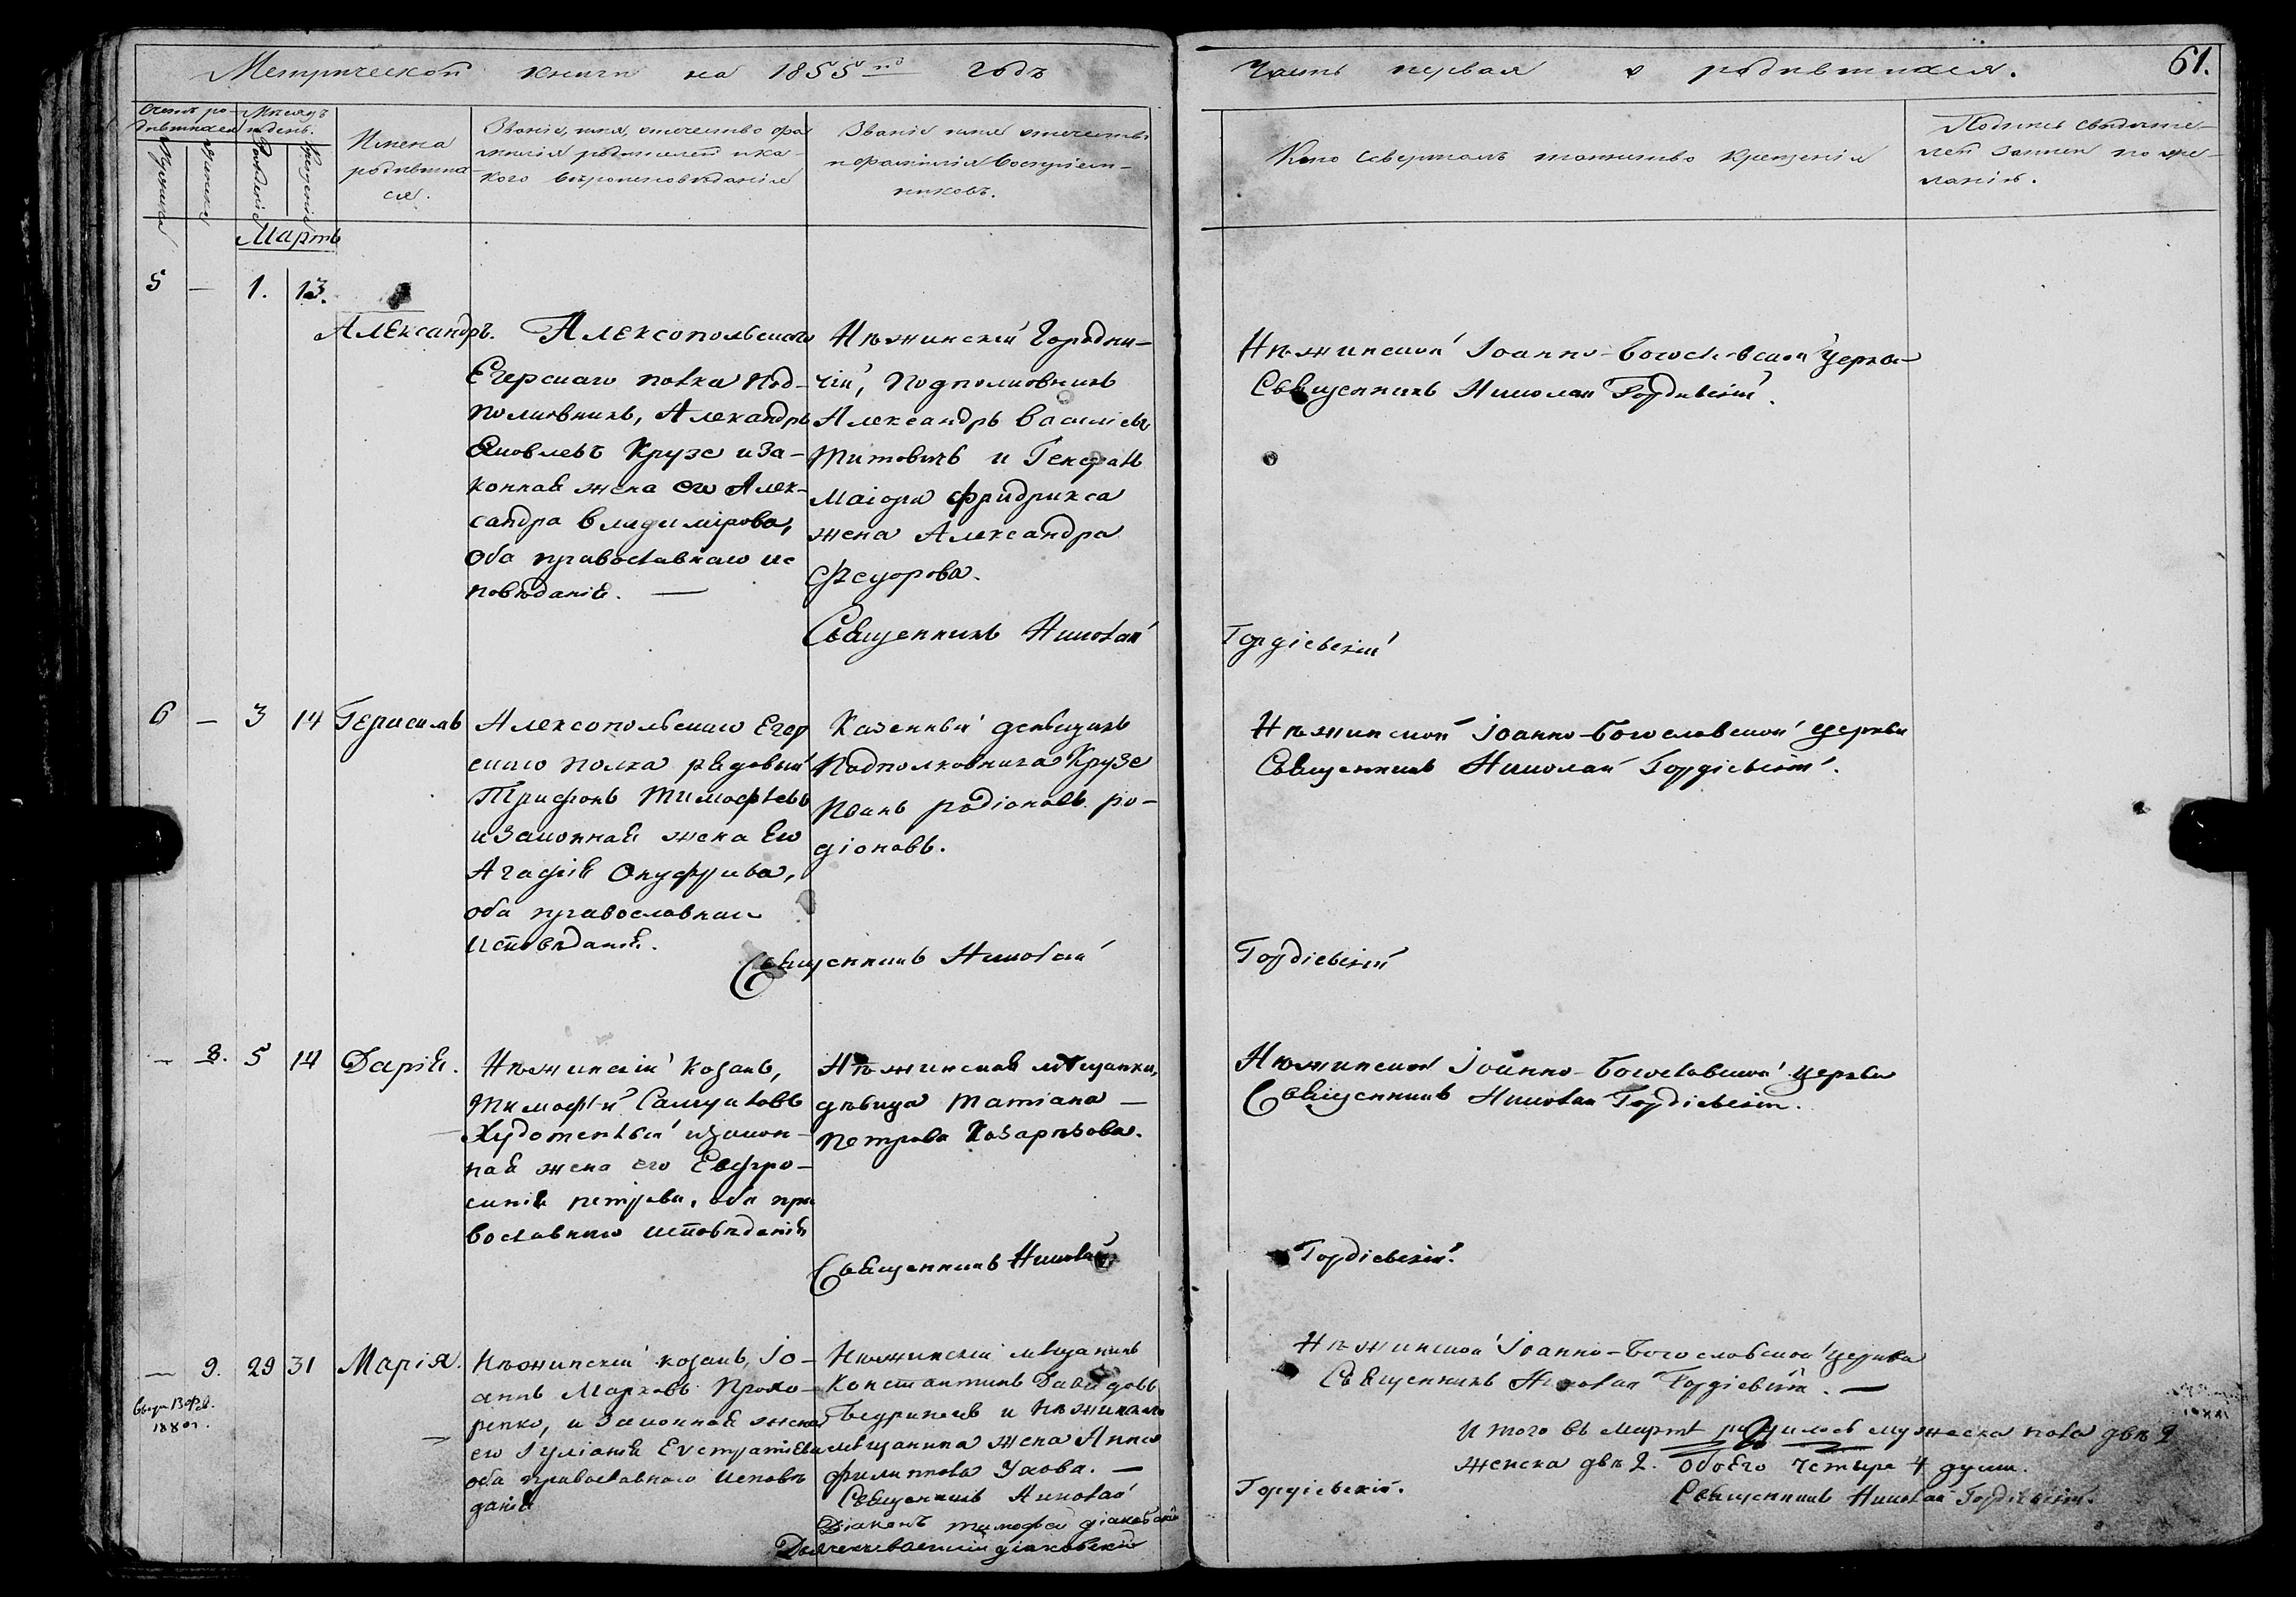 Метрической книги на 1855й годъ
Часть первая о родившихся.
61.
Счетъ ро-
дившихся
Мужеска
Женска
Мѣсяцъ
и день.
Рожденія
Крещенія
Имена
родивших-
ся.
Званіе, имя, отчество фа
милія родителей и ка-
кого вѣроисповѣданія
Званіе имя отчество
и фамилія воспріем-
никовъ.
Кто совершалъ таинство крещенія
Подпись свидѣте-
лей записи по же-
ланію.
Мартъ
5 — 1. 13.
Александръ.
Алексопольскаго
Егерскаго полка Под-
полковникъ, Александръ
Яковлевъ Крузе и за-
конная жена его Алек-
сандра Владимірова,
оба православнаго ис
повѣданія. —
Нѣжинскій Городни-
чій, Подполковникъ
Александръ Василіевъ
Титовичъ и Генералъ
Маіора Фридрикса
жена Александра
Феодорова.
Священникъ Николай
Нѣжинской Іоанно-Богословской Церкви
Священникъ Николай Гордіевскій.
Гордіевскій
6 — 3 14 Герасимъ
Алексопольскаго Егер
скаго полка рядовый
Трифонъ Тимофѣевъ
и законная жена его
Агафія Онуфріева,
оба православнаго
исповѣданія.
Казенный деньщикъ
Подполковника Крузе
Иванъ Родіоновъ Ро-
діоновъ.
Священникъ Николай
Нѣжинской Іоанно-Богословской церкви
Священникъ Николай Гордіевскій.
Гордіевскій
— 8. 5 14 Дарія.
Нѣжинскій козакъ,
Тимофѣй Самуиловъ
Худотеплый и закон-
ная жена его Евфро-
синія Петрова, оба пра
вославнаго исповѣданія
Нѣжинская мѣщанка,
дѣвица Татіана —
Петрова
Священникъ Николай
Нѣжинской Іоанно-Богословской церкви
Священникъ Николай Гордіевскій.
Гордіевскій.
— 9. 29 31 Марія.
13 Фев.
Нѣжинскій козакъ, Іо-
аннъ Марковъ Прохо-
ренко, и законная жена
его Іуліанія Евстратіева
оба православнаго исповѣ
данія
Нѣжинскій мѣщанинъ
Константинъ Давидовъ
и Нѣжинскаго
мѣщанина жена Анна
Филиппова —
Священникъ Николай
Діаконъ Тимофей Діаковскій
Дьячекъ Василій Діаковскій
Нѣжинской Іоанно-Богословской церкви
Священникъ Николай Гордіевскій. —
Итого въ Мартѣ родилось мужеска пола два 2
женска двѣ 2. обоего четыре 4 души.
Гордіевскій.
Священникъ Николай Гордіевскій.